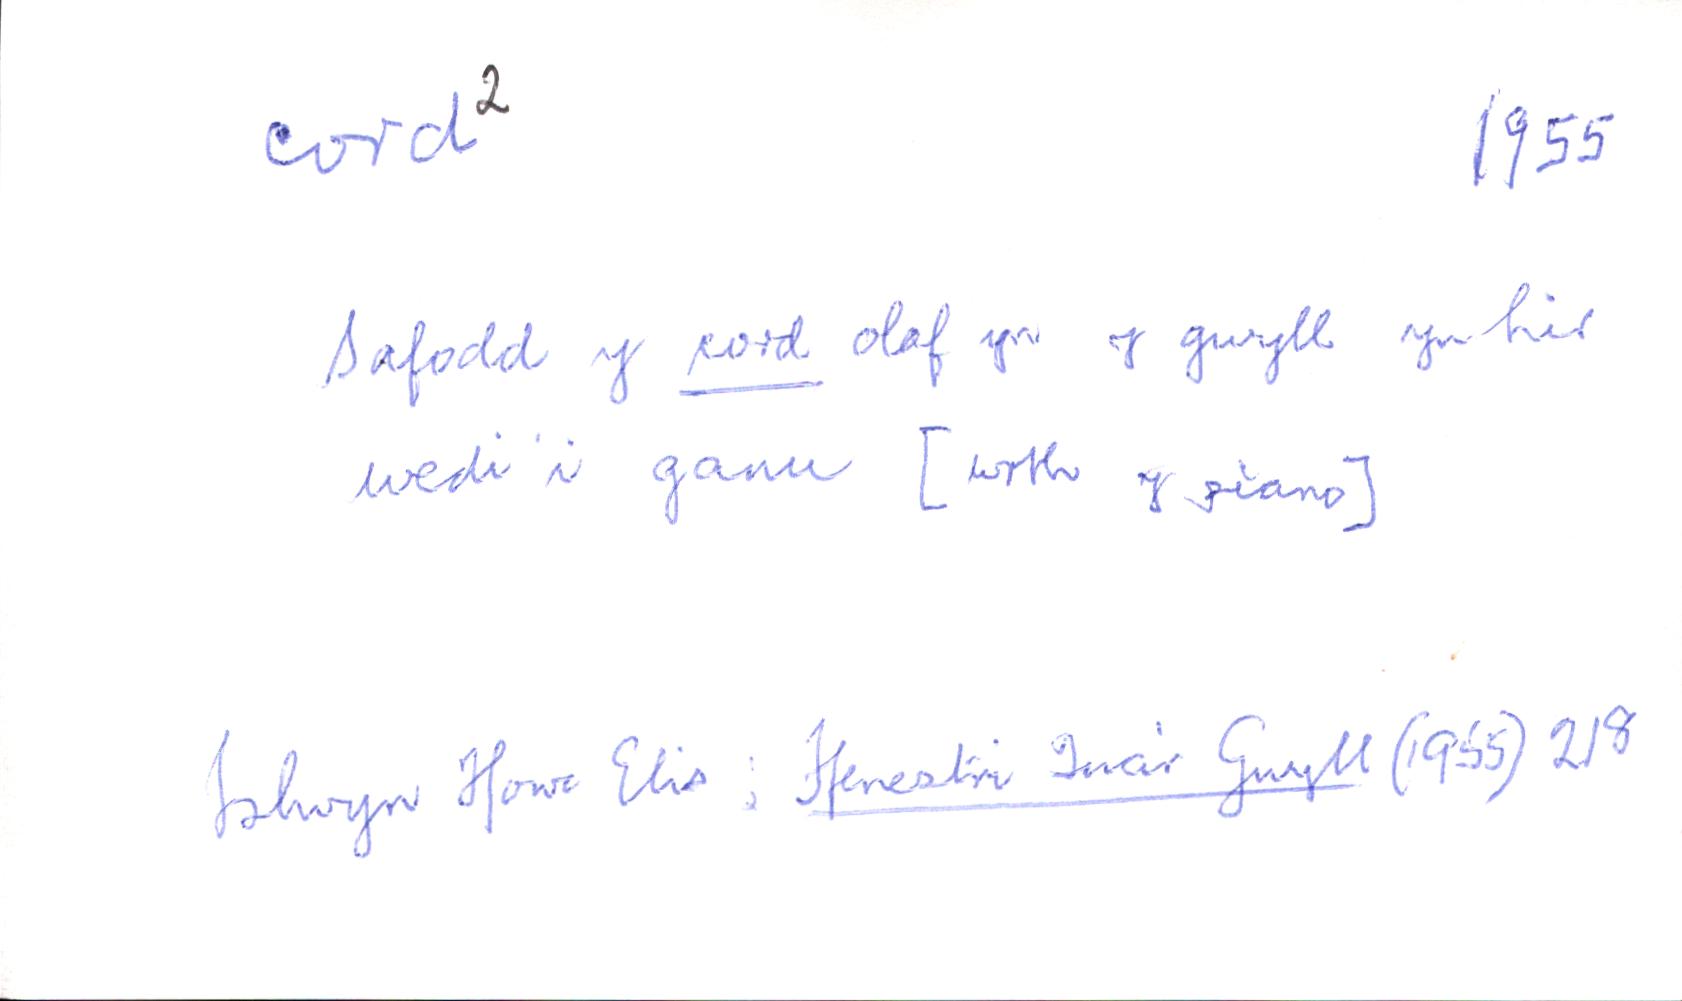 cord² 1955
Safodd y cord olaf yn y gwyll yn hir
wedi'i ganu [wrth y piano]
Islwyn Ffowc Elis; Ffenestri Tua'r Gwyll (1955) 218